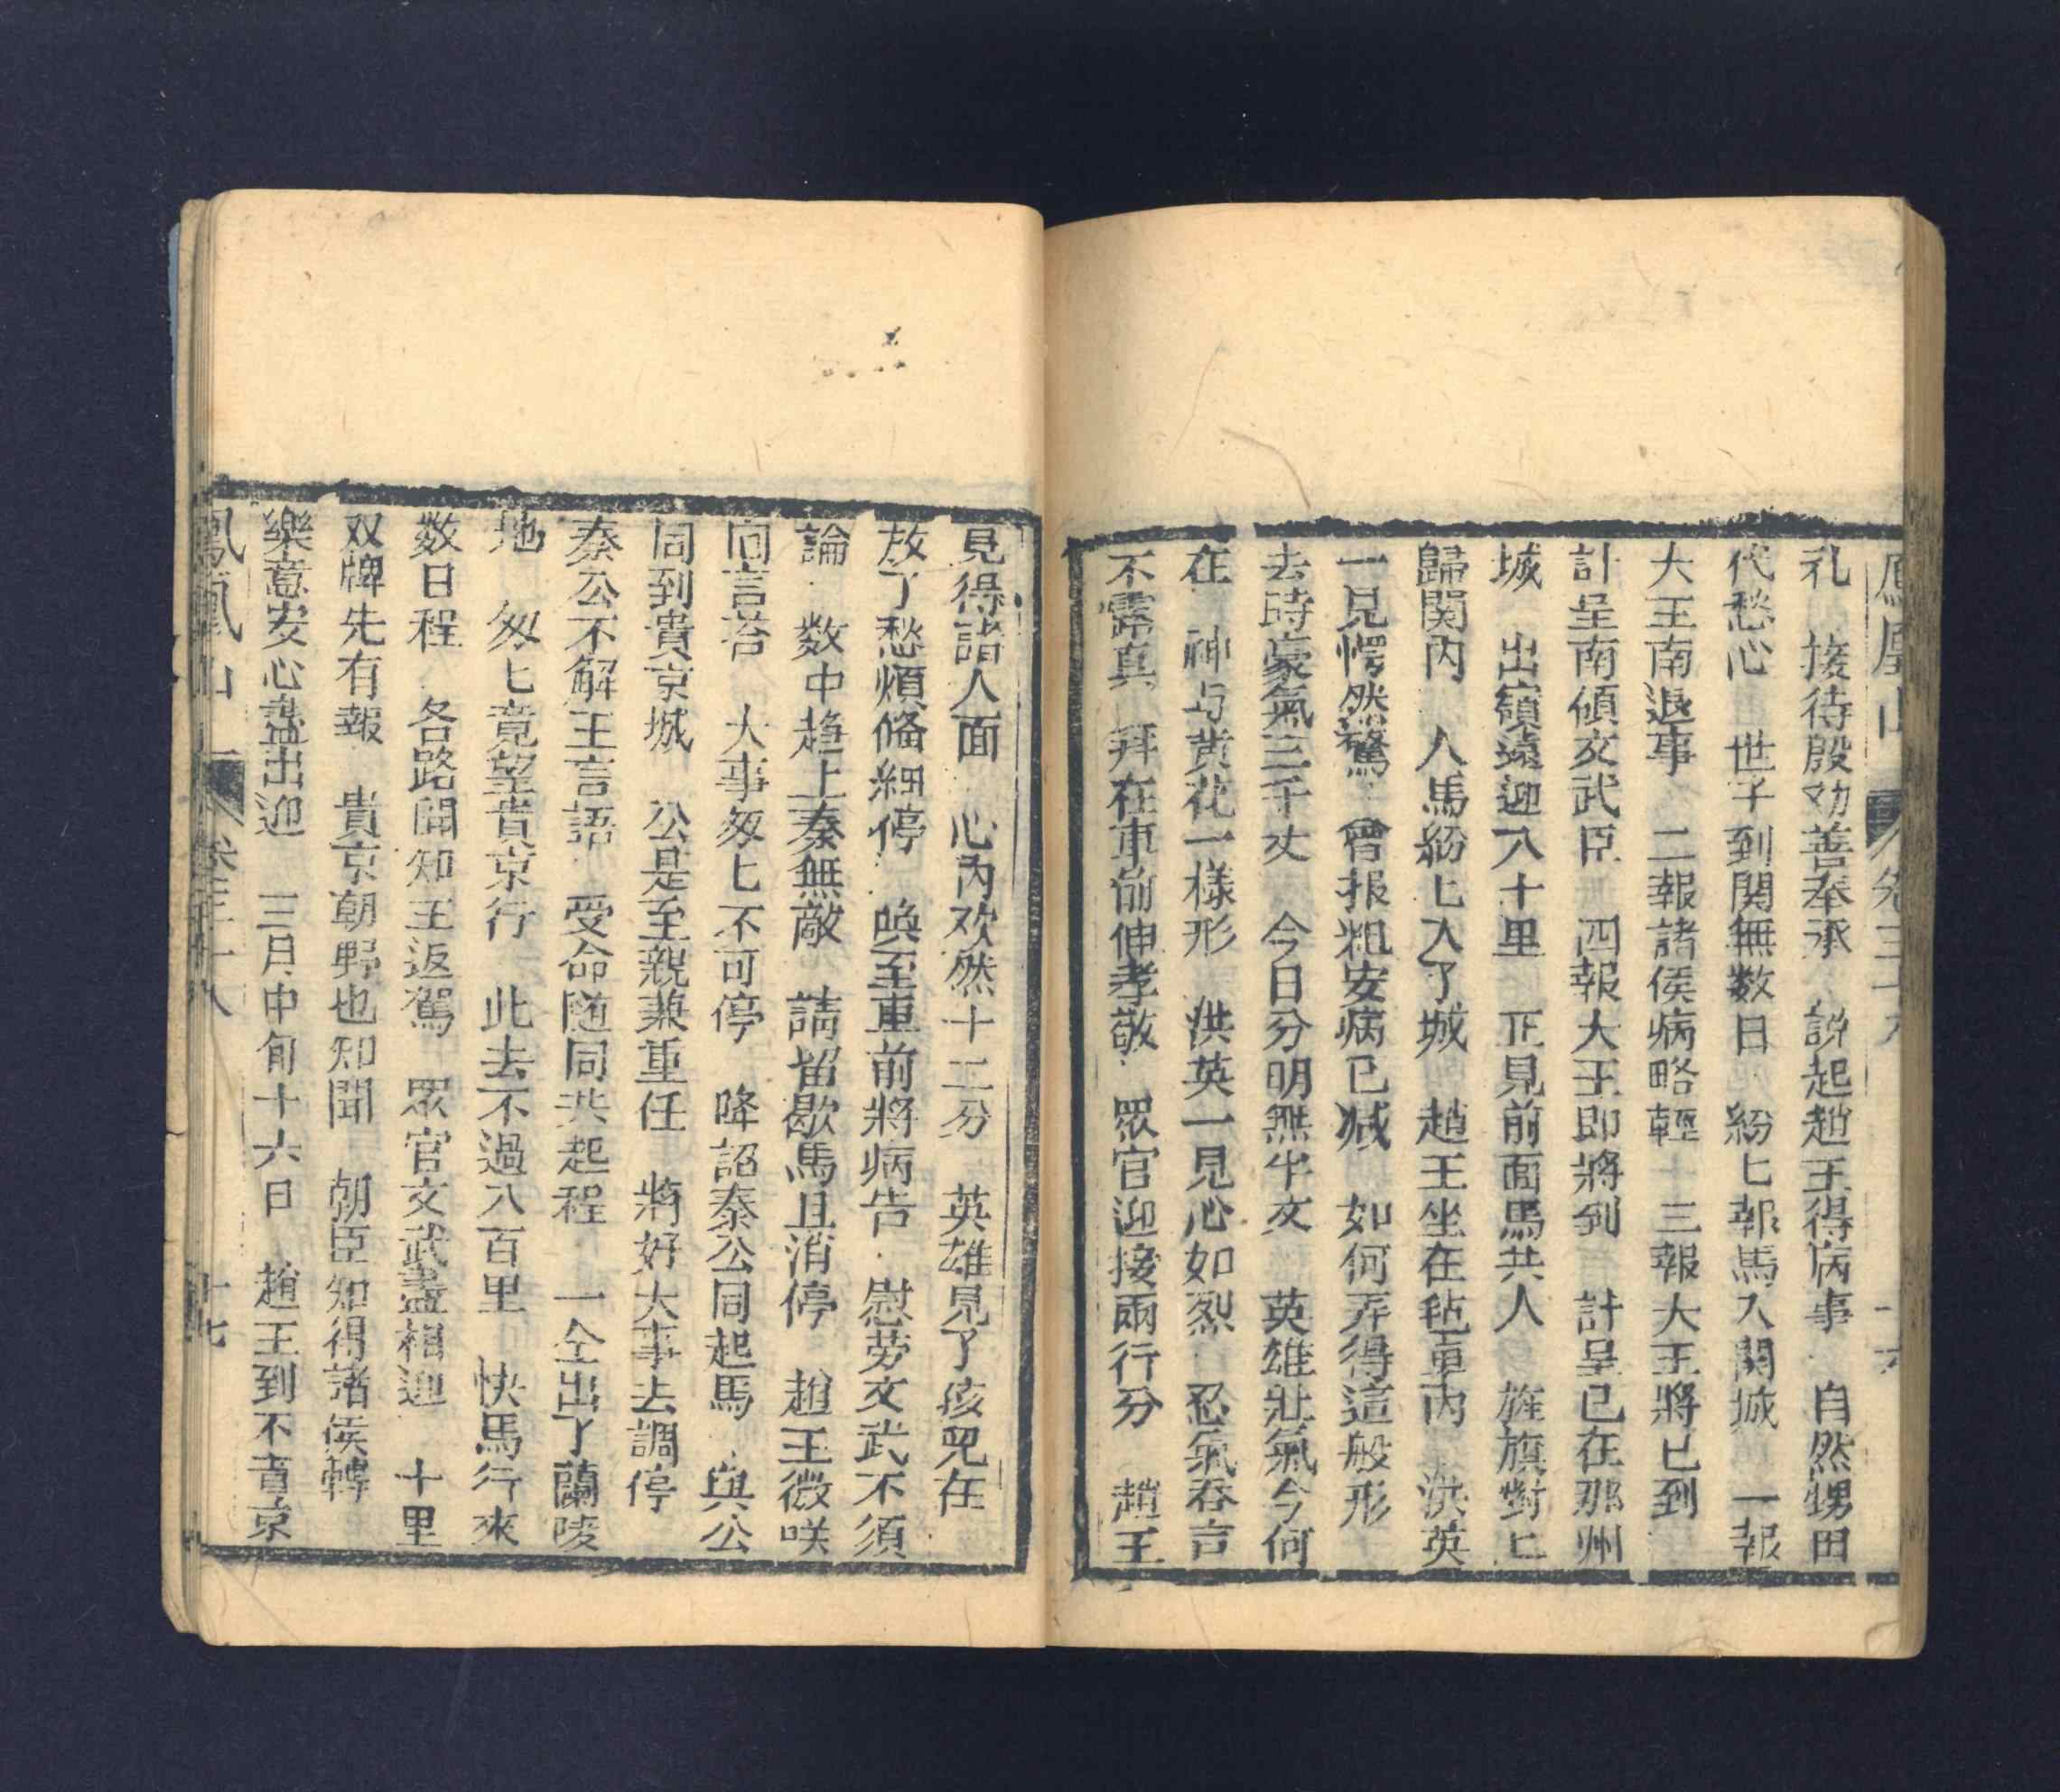 鳳凰山 卷三十八 十六
礼 接待殷勤善奉承 說起趙王得病事 自然甥田
代愁心 世子到関無数日 紛匕報馬入関城 一報
大王南退事 二報諸侯病略輕 三報大王將已到
計呈南傾文武臣 四報大王即將到 計呈已在那州
城 出嶺遠迎八十里 正見前面馬共人 旌旗對匕
歸関內 人馬紛匕入了城 趙王坐在毡車內 洪英
一見愕然驚 曾报粗安病已减 如何弄得這般形
去時豪氣三千丈 今日分明無半文 英雄壯氣今何
在 神与黄花一樣形 洪英一見心如烈 忍氣吞言
不露真 拜在車前伸孝敬 眾官迎接兩行分 趙王
見得諸人面 心內欢然十二分 英雄見了孩兒在
放了愁煩偹細停 喚至車前將病告 慰劳文武不須
論 数中趋上秦無敵 請留歇馬且消停 趙王微咲
囘言荅 大事匆匕不可停 降詔秦公同起馬 與公
同到貴京城 公是至親兼重任 將好大事去調停
秦公不解王言語 受命随同共起程 一仝出了蘭陵
地 匆匕竟望貴京行 此去不過八百里 快馬行來
数日程 各路聞知王返駕 眾官文武盡相迎 十里
双牌先有報 貴京朝野也知聞 朝臣知得諸侯轉
樂意安心盡出迎 三月中旬十六日 趙王到了貴京
鳳凰山 卷三十八 十七